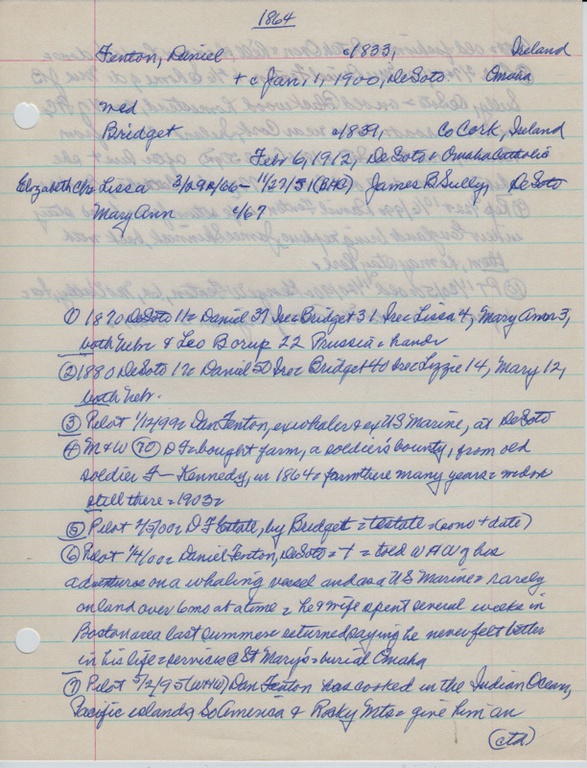 1864
Fenton, Daniel c1833, Ireland
+ c Jan, 1, 1900, DeSoto Omaha
wed
Bridget c1839, Co Cork, Ireland
Febr 6, 1912, DeSoto & Omaha Catholic
Elizabeth c/w Lissa 3/29 - 11/27/51 (BHC) James B Sully, DeSoto
Mary Ann c/67
① 1870 DeSoto 11= Daniel 37 Ire= Bridget 31 Ire= Lissa 4, Mary Ann 3,
both Nebr & Leo Borup 22 Prussia= hand=
② 1880 DeSoto 12 Daniel 50 Ire= Bridget 40 Ire= Lizzie 14, Mary 12,
both Nebr.
③ Pilot 1/12/99= Dan Fenton, exwhaler & ex US Marine, at DeSoto
④ M&W (70) D F= bought farm, a soldier's bounty, from old
soldier F— Kennedy, in 1864= farm there many years= widow
still there= 1903=
⑤ Pilot 2/5/00= D F Estate, by Bridget = testate= (sono + date)
⑥ Pilot 1/4/00= Daniel Fenton, DeSoto= + = told W H W of his
adventures on a whaling vessel and as a US Marine= rarely
on land over 6ms at a time= he & wife spent several weeks in
Boston area last summer= returned saying he never felt better
in his life= services @ St Mary's= burial Omaha
⑦ Pilot 5/2/95 (WHW) Dan Fenton has cooked in the Indian Ocean,
Pacific islands, So America & Rocky Mts= give him an
(ctd)